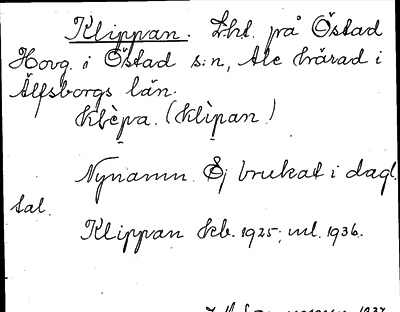 Klippan. Lht. på Östad
Hovg. i Östad s:n, Ale härad i
Älfsborgs län.
Klèpa. (Klìpan!)
Nynamn. Ej brukat i dagl.
tal.
Klippan kb. 1925; ml. 1936.
1937